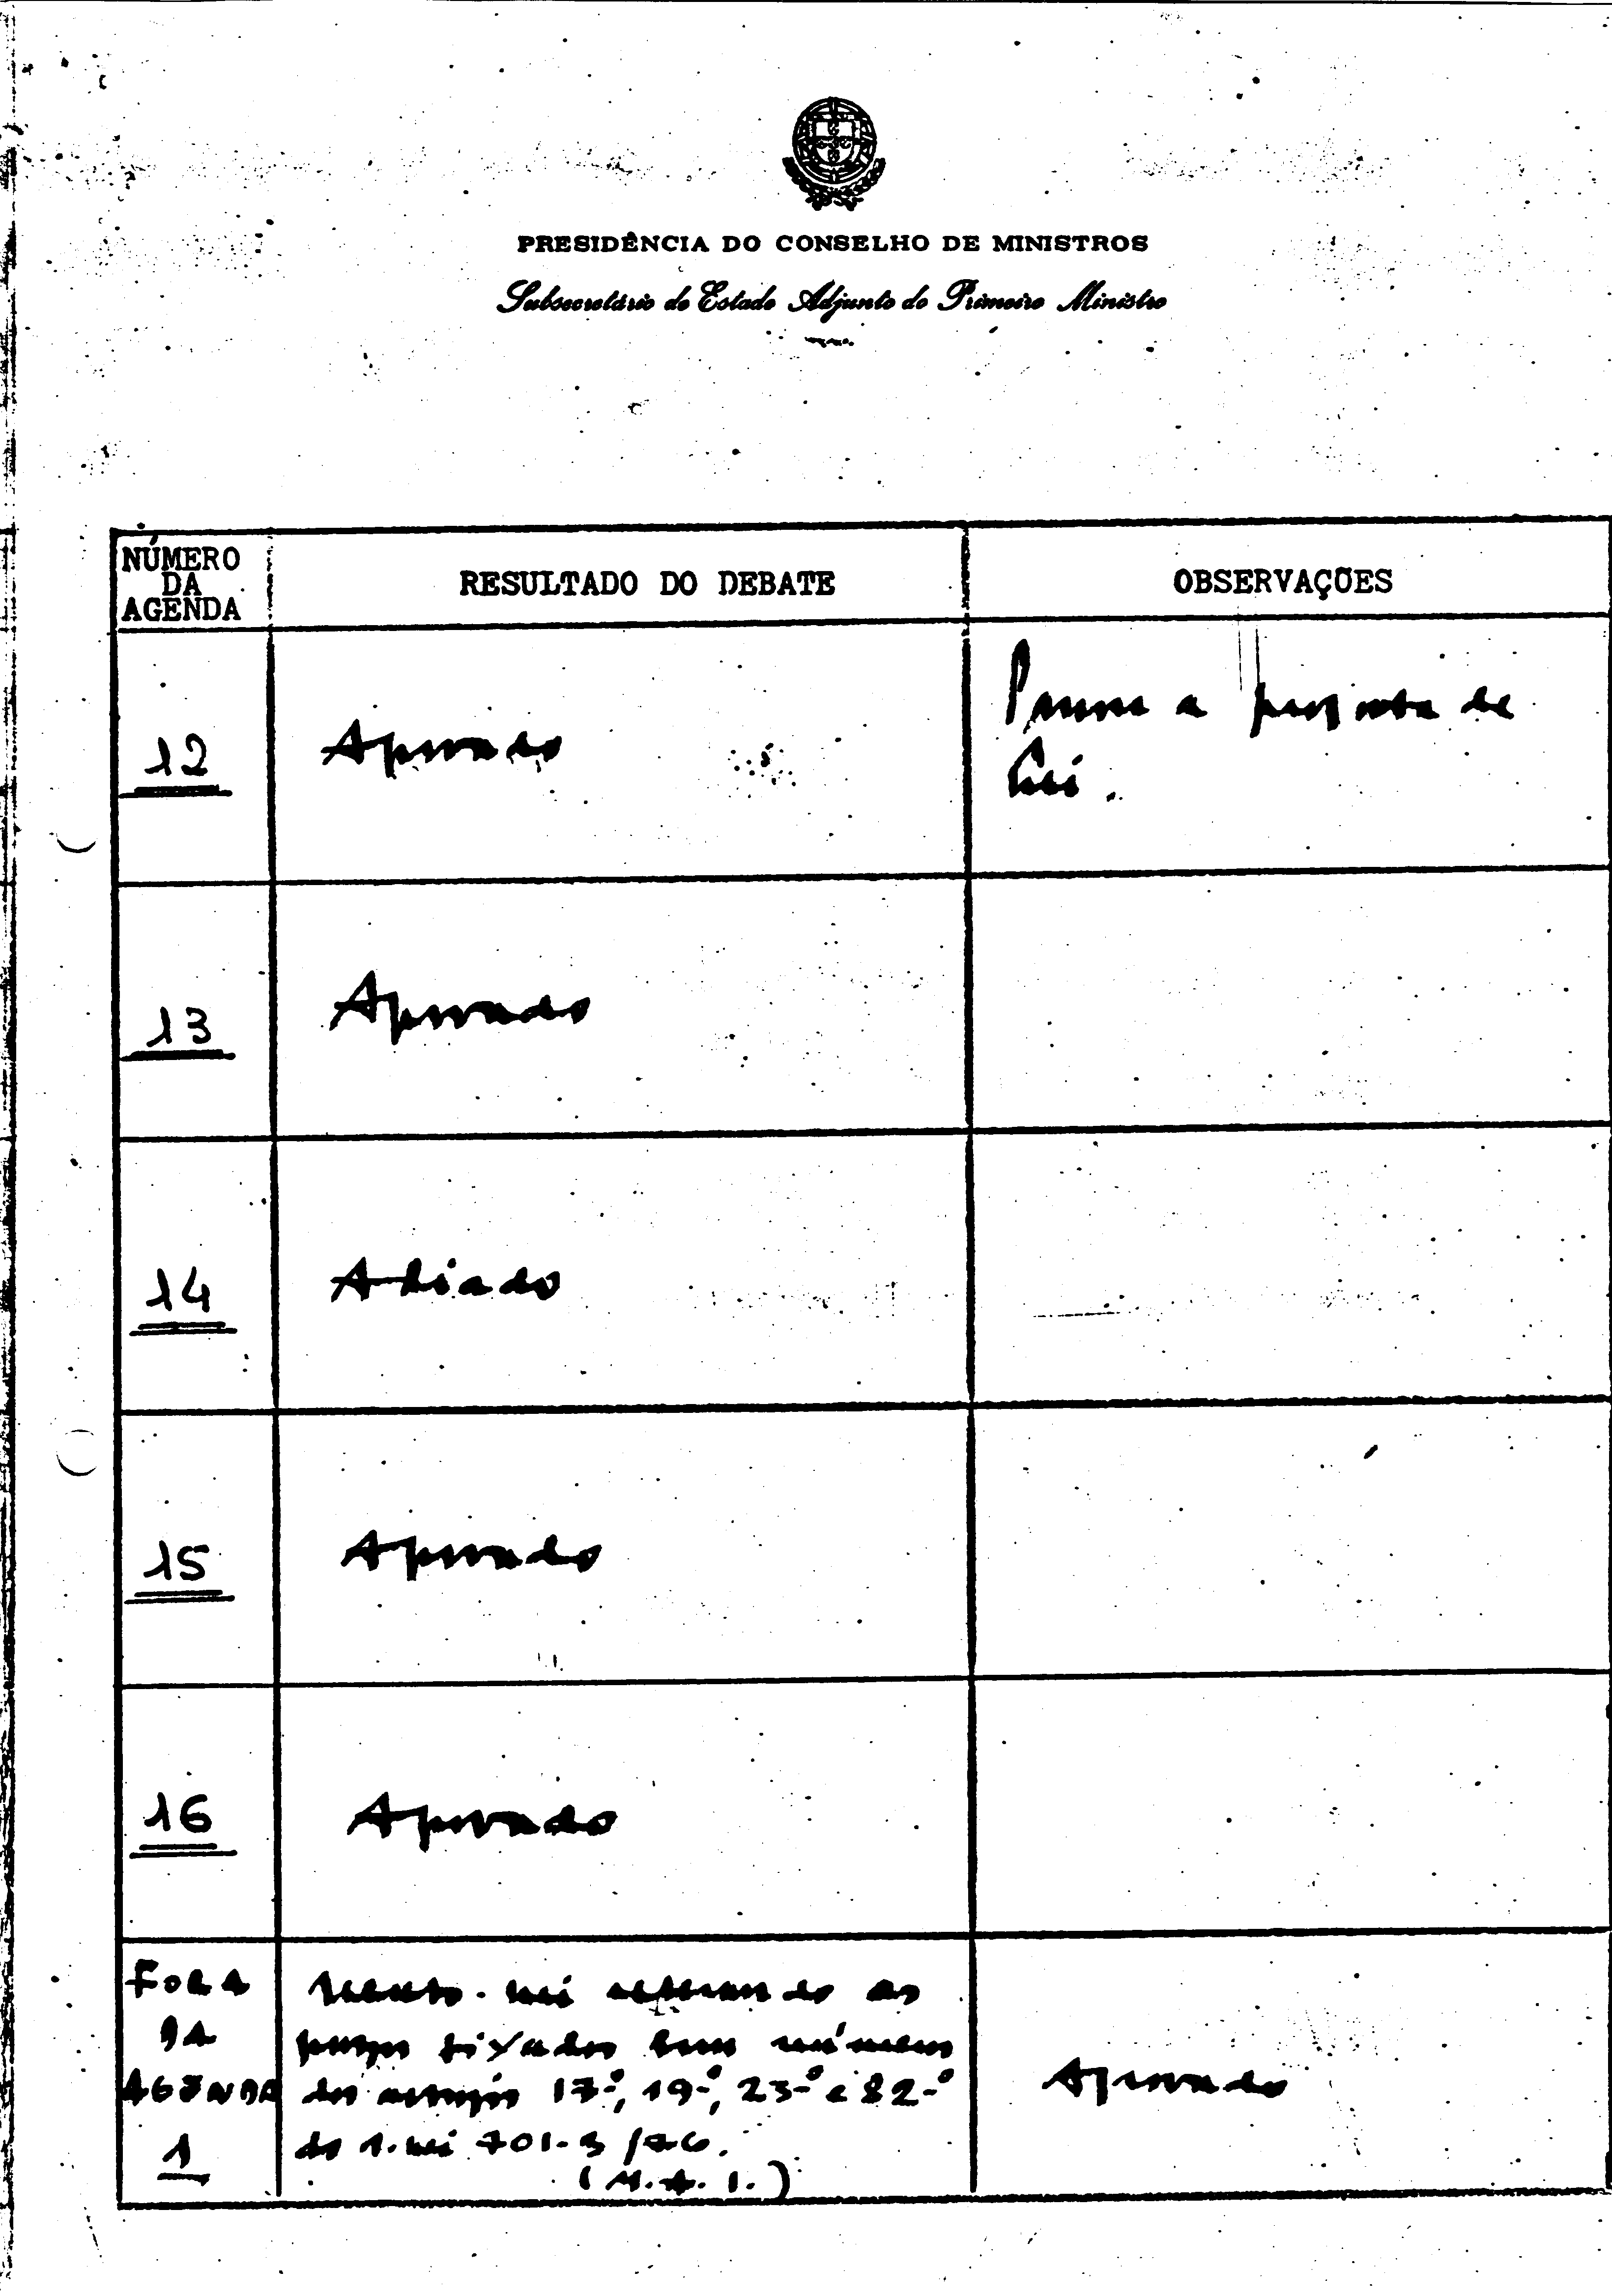 PRESIDÊNCIA DO CONSELHO DE MINISTROS
Subsecretário de Estado Adjunto do Primeiro Ministro
NÚMERO
DA
AGENDA
RESULTADO DO DEBATE
OBSERVAÇÕES
12
Aprovado
Passou a proposta de
Lei.
13
Aprovado
14
Adiado
15
Aprovado
16
Aprovado
FORA
DA
AGENDA
1
Decreto-Lei alterando os
prazos fixados nos números
dos artigos 17.º, 19.º, 23.º e 82.º
do D. Lei 701-B/76.
(M.A.I.)
Aprovado